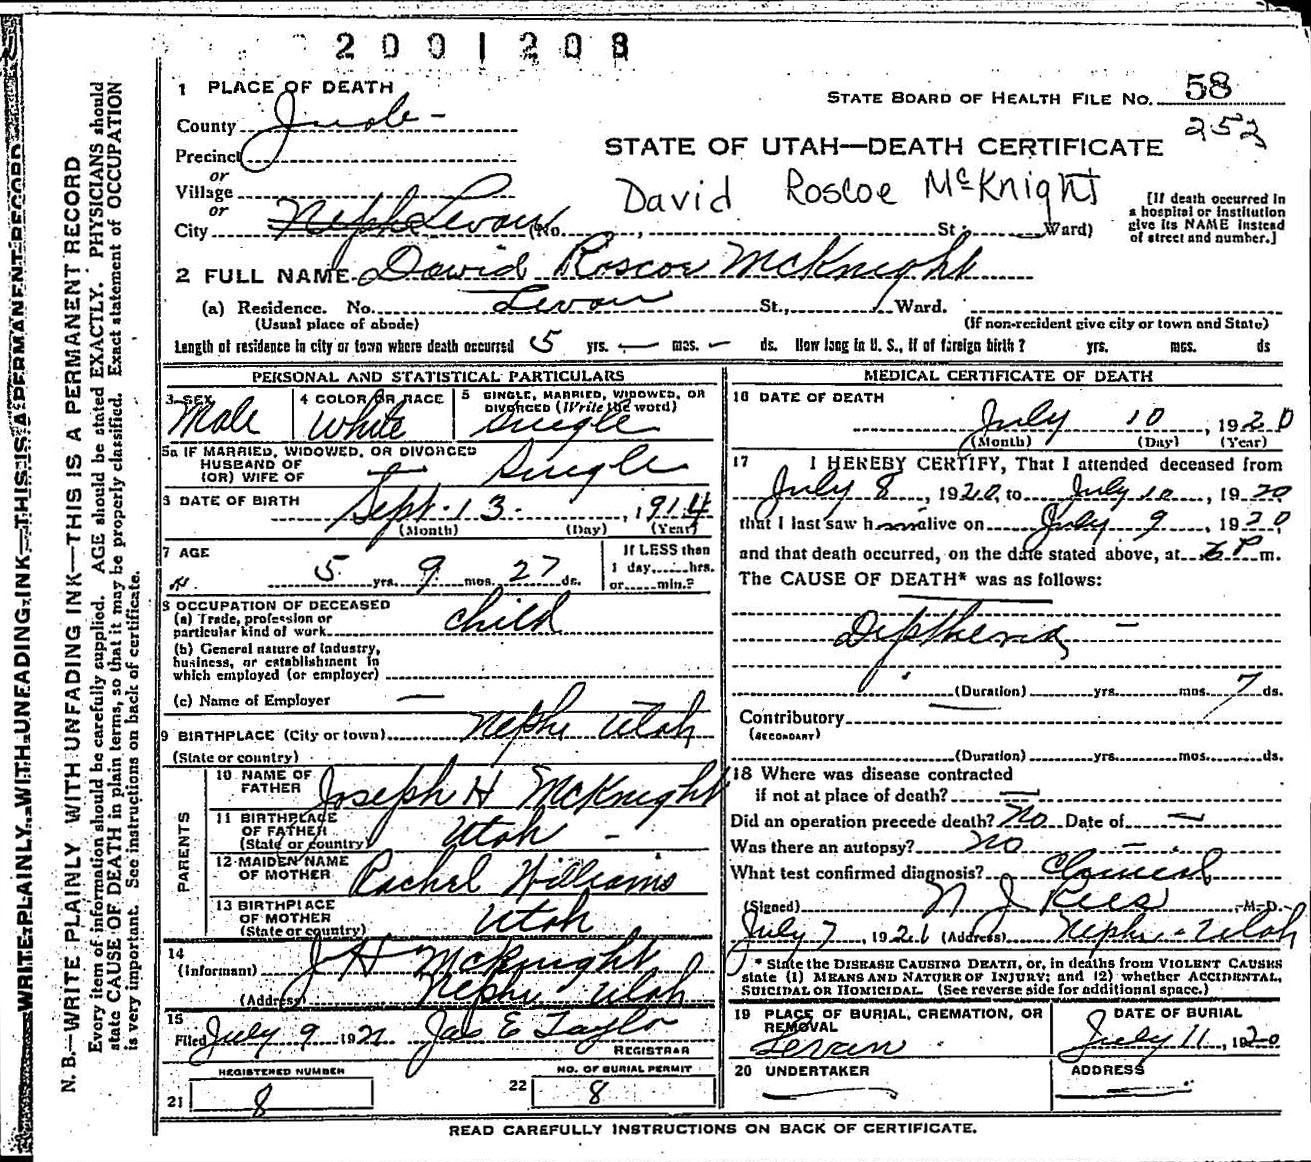 2001208
1 PLACE OF DEATH
STATE BOARD OF HEALTH FILE NO. 58
252
County Juab -
Precinct
or
Village
or
City Nephi Levan (No. , St; Ward)
STATE OF UTAH—DEATH CERTIFICATE
David Roscoe McKnight
[If death occurred in
a hospital or institution
give its NAME instead
of street and number.]
2 FULL NAME David Roscoe McKnight
(a) Residence. No. Levan St., Ward.
(Usual place of abode)
(If non-resident give city or town and State)
Length of residence in city or town where death occurred 5 yrs. — mos. — ds. How long in U. S., if of foreign birth? yrs. mos. ds
PERSONAL AND STATISTICAL PARTICULARS
3 SEX
Male
4 COLOR OR RACE
White
5 SINGLE, MARRIED, WIDOWED, OR
DIVORCED (Write the word)
Single
5a IF MARRIED, WIDOWED, OR DIVORCED
HUSBAND OF
(OR) WIFE OF
Single
6 DATE OF BIRTH
Sept. 13. , 1914
(Month) (Day) (Year)
7 AGE
5 yrs. 9 mos. 27 ds.
If LESS than
1 day, hrs.
or min.?
8 OCCUPATION OF DECEASED
(a) Trade, profession or
particular kind of work child
(b) General nature of industry,
business, or establishment in
which employed (or employer)
(c) Name of Employer —
9 BIRTHPLACE (City or town) Nephi Utah
(State or country)
PARENTS
10 NAME OF
FATHER Joseph H McKnight
11 BIRTHPLACE
OF FATHER
(State or country) Utah -
12 MAIDEN NAME
OF MOTHER Rachel Williams
13 BIRTHPLACE
OF MOTHER
(State or country) Utah
14
(Informant) J H McKnight
(Address) Nephi Utah
15
Filed July 9 1921 Jas E Taylor
REGISTRAR
REGISTERED NUMBER
21 8
NO. OF BURIAL PERMIT
22 8
MEDICAL CERTIFICATE OF DEATH
16 DATE OF DEATH
July 10 , 1920
(Month) (Day) (Year)
17 I HEREBY CERTIFY, That I attended deceased from
July 8 , 1920, to July 10 , 1920
that I last saw him alive on July 9 , 1920
and that death occurred, on the date stated above, at P m.
The CAUSE OF DEATH* was as follows:
Diptheria -
(Duration) yrs. mos. 7 ds.
Contributory
(SECONDARY)
(Duration) yrs. mos. ds.
18 Where was disease contracted
if not at place of death? —
Did an operation precede death? No Date of —
Was there an autopsy? No
What test confirmed diagnosis? Clinical
(Signed) N J Rees M. D.
July 7 , 1921 (Address) Nephi - Utah
* State the DISEASE CAUSING DEATH, or, in deaths from VIOLENT CAUSES
state (1) MEANS AND NATURE OF INJURY; and (2) whether ACCIDENTAL,
SUICIDAL OR HOMICIDAL. (See reverse side for additional space.)
19 PLACE OF BURIAL, CREMATION, OR
REMOVAL
Levan
DATE OF BURIAL
July 11 , 1920
20 UNDERTAKER
ADDRESS
READ CAREFULLY INSTRUCTIONS ON BACK OF CERTIFICATE.
WRITE PLAINLY, WITH UNFADING INK—THIS IS A PERMANENT RECORD
N. B.—WRITE PLAINLY WITH UNFADING INK—THIS IS A PERMANENT RECORD
Every item of information should be carefully supplied. AGE should be stated EXACTLY. PHYSICIANS should
state CAUSE OF DEATH in plain terms, so that it may be properly classified. Exact statement of OCCUPATION
is very important. See instructions on back of certificate.